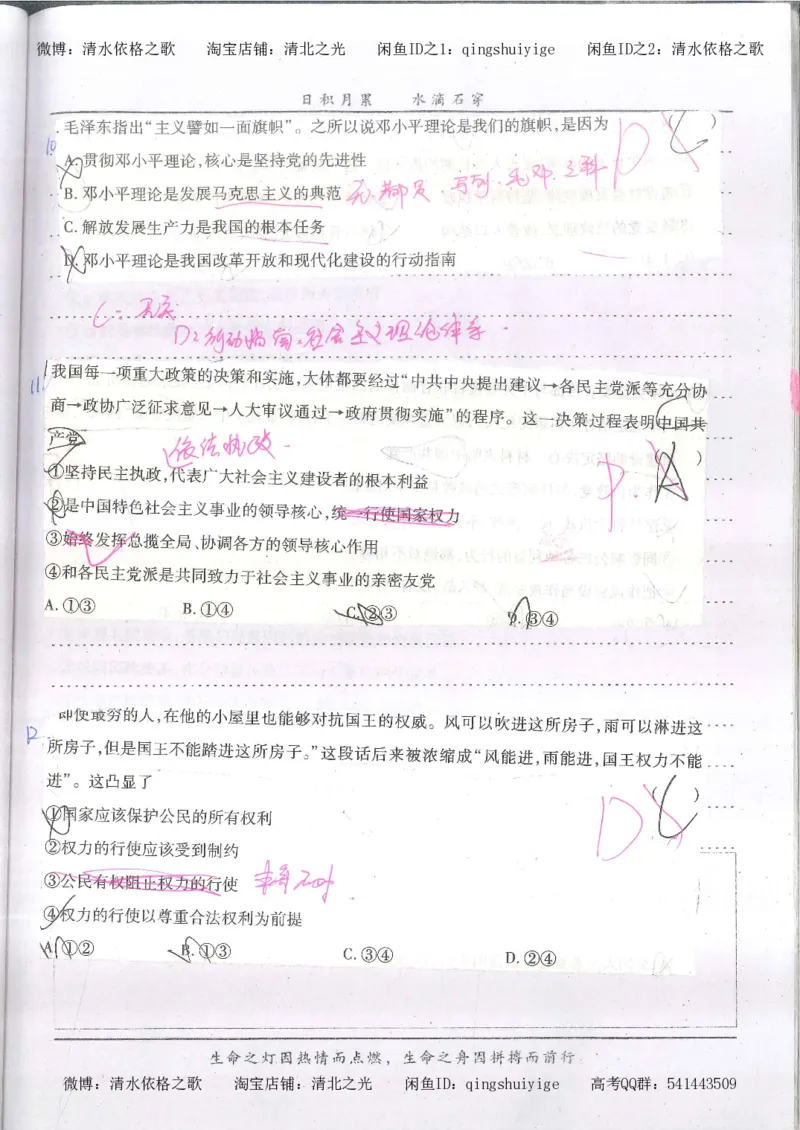 微博：清水依格之歌 淘宝店铺：清北之光 闲鱼ID之1：qingshuiyige 闲鱼ID之2：清水依格之歌
日积月累 水滴石穿
10.
毛泽东指出“主义譬如一面旗帜”。之所以说邓小平理论是我们的旗帜,是因为 ( C )
D
A. 贯彻邓小平理论,核心是坚持党的先进性
B. 邓小平理论是发展马克思主义的典范
C. 解放发展生产力是我国的根本任务
D. 邓小平理论是我国改革开放和现代化建设的行动指南
C:
D:行动指南:社会主义理论体系
11.
我国每一项重大政策的决策和实施,大体都要经过“中共中央提出建议→各民主党派等充分协
商→政协广泛征求意见→人大审议通过→政府贯彻实施”的程序。这一决策过程表明中国共
产党 ( A )
依法执政
D
①坚持民主执政,代表广大社会主义建设者的根本利益
②是中国特色社会主义事业的领导核心,统一行使国家权力
③始终发挥总揽全局、协调各方的领导核心作用
④和各民主党派是共同致力于社会主义事业的亲密友党
A. ①③ B. ①④ C. ②③ D. ③④
12
即使最穷的人,在他的小屋里也能够对抗国王的权威。风可以吹进这所房子,雨可以淋进这
所房子,但是国王不能踏进这所房子。”这段话后来被浓缩成“风能进,雨能进,国王权力不能
进”。这凸显了 ( C )
D
①国家应该保护公民的所有权利
②权力的行使应该受到制约
③公民有权阻止权力的行使
④权力的行使以尊重合法权利为前提
A. ①② B. ①③ C. ③④ D. ②④
生命之灯因热情而点燃，生命之舟因拼搏而前行
微博：清水依格之歌 淘宝店铺：清北之光 闲鱼ID：qingshuiyige 高考QQ群：541443509